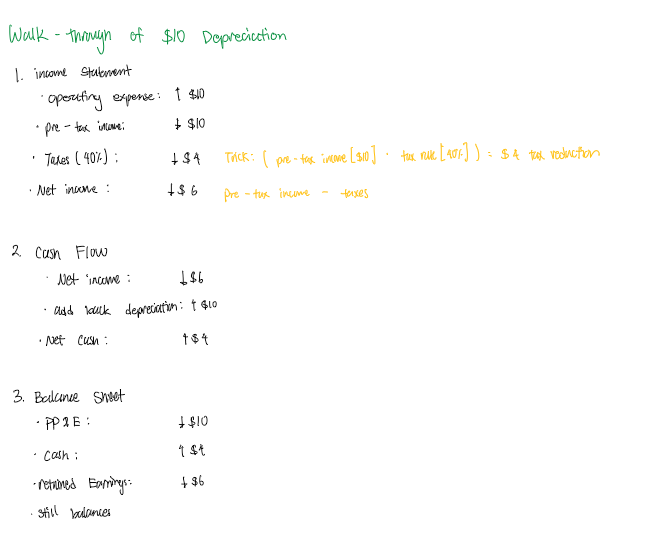 Walk-through of $10 Depreciation
1. income Statement
· operating expense: ↑ $10
· pre-tax income: ↓ $10
· Taxes (40%): ↓ $4 Trick: (pre-tax income [$10] · tax rate [40%]) = $4 tax reduction
· Net income: ↓ $6 pre-tax income - taxes
2. Cash Flow
· Net income: ↓ $6
· add back depreciation: ↑ $10
· Net Cash: ↑ $4
3. Balance Sheet
· PP&E: ↓ $10
· Cash: ↑ $4
· retained Earnings: ↓ $6
· still balances